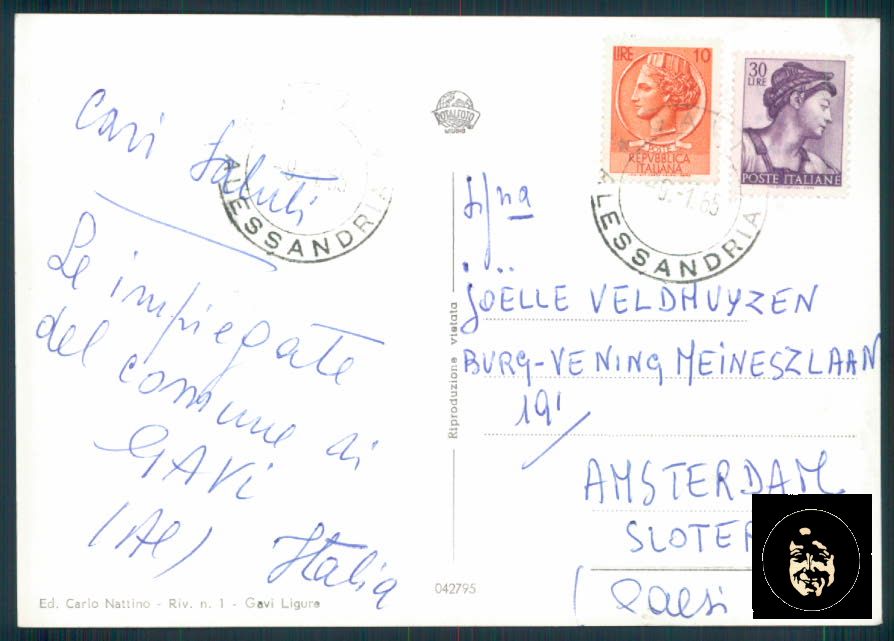 Cari Saluti
Le impiegate
del comune di
GAVI
(Al) Italia
Ed. Carlo Nattino - Riv. n. 1 - Gavi Ligure
ALESSANDRIA
ROTALFOTO
MILANO
Riproduzione vietata
042795
LIRE 10
POSTE
REPVBBLICA
ITALIANA
30
LIRE
POSTE ITALIANE
-1.65
ALESSANDRIA
JOËLLE VELDHUYZEN
BURG-VENING MEINESZLAAN
191
AMSTERDAM
SLOTER
(Paesi